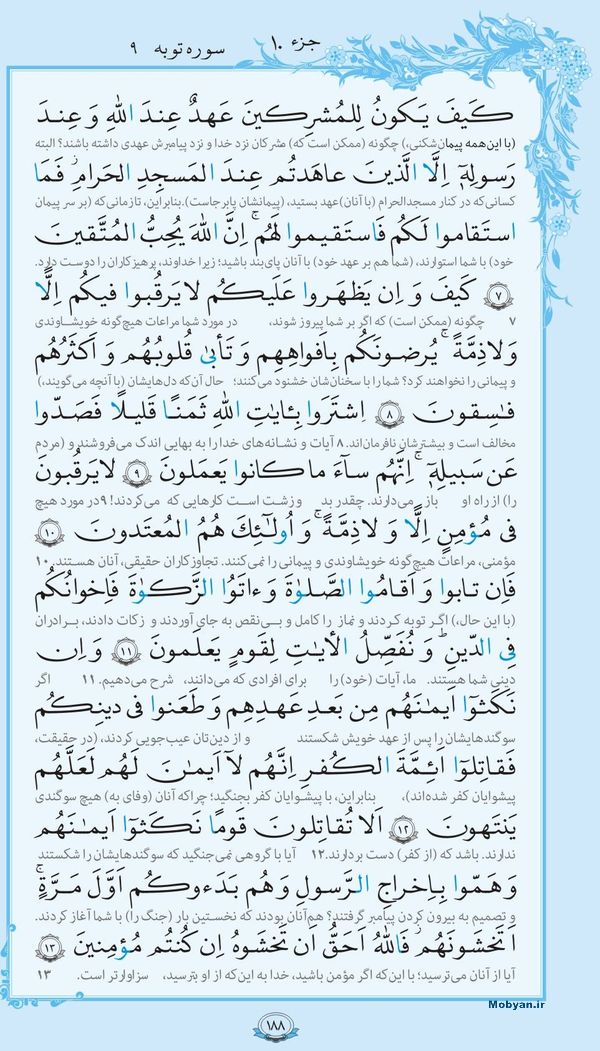 جزء ۱۰ سوره توبه ۹
كَيفَ يَكونُ لِلمُشرِكينَ عَهدٌ عِندَ اللهِ وَ عِندَ
(با این‌همه پیمان‌شکنی،) چگونه (ممکن است که) مشرکان نزد خدا و نزد پیامبرش عهدی داشته باشند؟ البته
رَسولِهٖٓ اِلَّا الَّذينَ عاهَدتُم عِندَ المَسجِدِ الحَرامِ ۖ فَمَا
کسانی‌که در کنار مسجدالحرام (با آنان) عهد بستید، (پیمانشان پابرجاست). بنابراین، تازمانی‌که (بر سر پیمان
استَقاموا لَكُم فَاستَقيموا لَهُم ۚ اِنَّ اللهَ يُحِبُّ المُتَّقينَ
خود) با شما استوارند، (شما هم بر عهد خود) با آنان پای‌بند باشید؛ زیرا خداوند، پرهیزکاران را دوست دارد.
﴿۷﴾ كَيفَ وَ اِن يَظهَروا عَلَيكُم لا يَرقُبوا فيكُم اِلًّا
۷ چگونه (ممکن است) که اگر بر شما پیروز شوند، در مورد شما مراعات هیچ‌گونه خویشاوندی
وَلا ذِمَّةً ۚ يُرضونَكُم بِاَفواهِهِم وَ تَأبىٰ قُلوبُهُم وَ اَكثَرُهُم
و پیمانی را نخواهند کرد؟ شما را با سخنان‌شان خشنود می‌کنند؛ حال آن‌که دل‌هایشان (با آنچه می‌گویند،)
فـٰسِقونَ ﴿۸﴾ اِشتَرَوا بِـٔايـٰتِ اللهِ ثَمَنًا قَليلًا فَصَدّوا
مخالف است و بیشترشان نافرمان‌اند. ۸ آیات و نشانه‌های خدا را به بهایی اندک می‌فروشند و (مردم
عَن سَبيلِهٖٓ ۚ اِنَّهُم سآءَ ما كانوا يَعمَلونَ ﴿۹﴾ لا يَرقُبونَ
را) از راه او باز می‌دارند. چقدر بد و زشت است کارهایی که می‌کردند! ۹ در مورد هیچ
فى مُؤمِنٍ اِلًّا وَ لا ذِمَّةً ۚ وَ اُولـٰٓئِكَ هُمُ المُعتَدونَ ﴿۱۰﴾
مؤمنی، مراعات هیچ‌گونه خویشاوندی و پیمانی را نمی‌کنند. تجاوزکاران حقیقی، آنان هستند. ۱۰
فَاِن تابوا وَ اَقامُوا الصَّلوٰةَ وَ ءاتَوُا الزَّكوٰةَ فَاِخوانُكُم
(با این حال،) اگر توبه کردند و نماز را کامل و بی‌نقص به جای آوردند و زکات دادند، برادران
فِى الدّينِ ۗ وَ نُفَصِّلُ الأيـٰتِ لِقَومٍ يَعلَمونَ ﴿۱۱﴾ وَ اِن
دینی شما هستند. ما، آیات (خود) را برای افرادی که می‌دانند، شرح می‌دهیم. ۱۱ اگر
نَكَثوٓا اَيمـٰنَهُم مِن بَعدِ عَهدِهِم وَ طَعَنوا فى دينِكُم
سوگندهایشان را پس از عهد خویش شکستند و از دین‌تان عیب‌جویی کردند، (در حقیقت،
فَقاتِلوٓا اَئِمَّةَ الكُفرِ ۙ اِنَّهُم لآ اَيمـٰنَ لَهُم لَعَلَّهُم
پیشوایان کفر شده‌اند)، بنابراین، با پیشوایان کفر بجنگید؛ چراکه آنان (وفای به) هیچ سوگندی
يَنتَهونَ ﴿۱۲﴾ اَلا تُقاتِلونَ قَومًا نَكَثوٓا اَيمـٰنَهُم
ندارند. باشد که (از کفر) دست بردارند. ۱۲ آیا با گروهی نمی‌جنگید که سوگندهایشان را شکستند
وَ هَمّوا بِاِخراجِ الرَّسولِ وَ هُم بَدَءوكُم اَوَّلَ مَرَّةٍ ۚ
و تصمیم به بیرون کردن پیامبر گرفتند؟ هم‌آنان بودند که نخستین بار (جنگ را) با شما آغاز کردند.
اَتَخشَونَهُم ۚ فَاللهُ اَحَقُّ اَن تَخشَوهُ اِن كُنتُم مُؤمِنينَ ﴿۱۳﴾
آیا از آنان می‌ترسید؛ با این‌که اگر مؤمن باشید، خدا به این‌که از او بترسید، سزاوارتر است. ۱۳
۱۸۸
Mobyan.ir